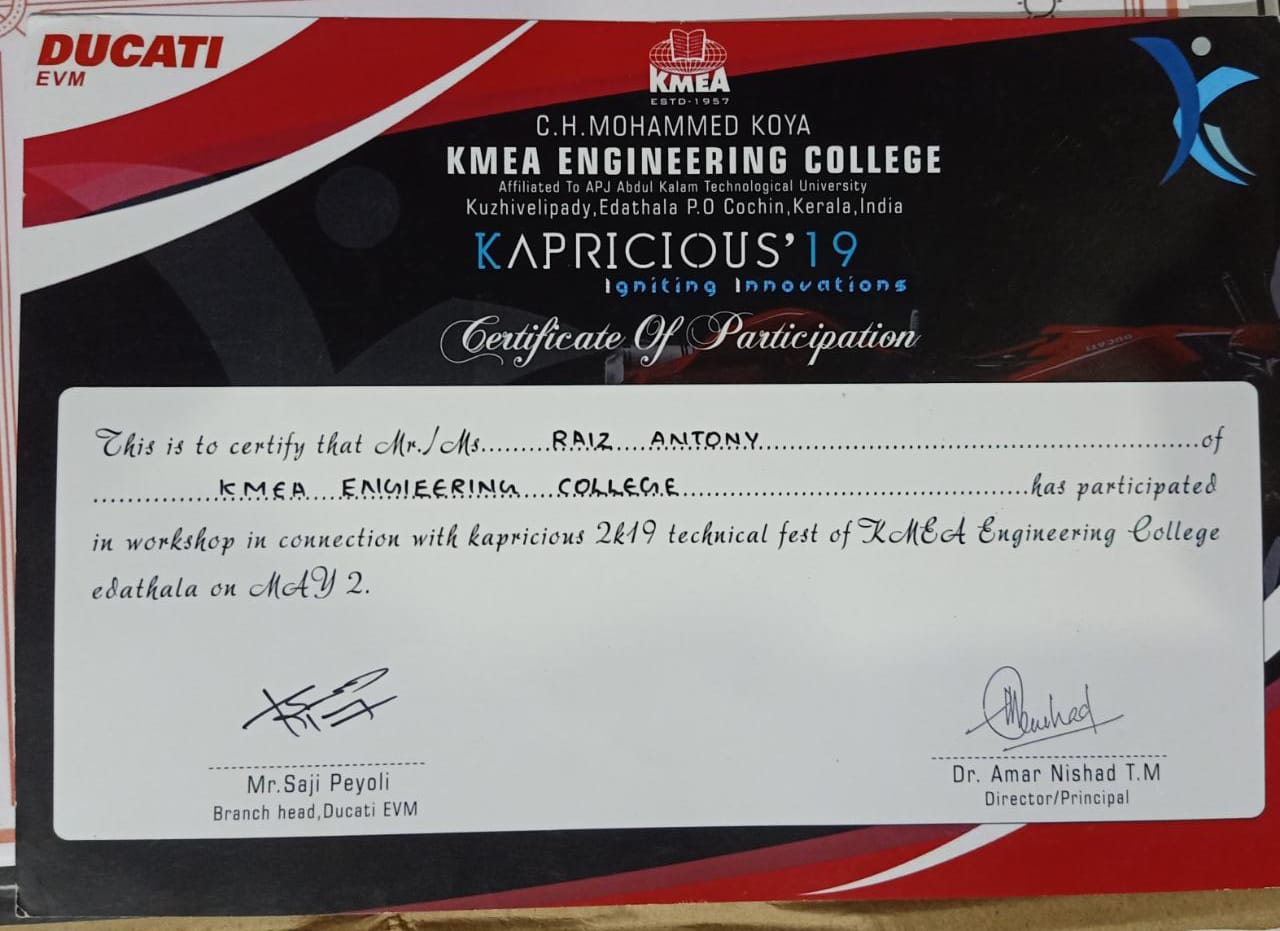 DUCATI
EVM
KMEA
ESTD-1957
C.H.MOHAMMED KOYA
KMEA ENGINEERING COLLEGE
Affiliated To APJ Abdul Kalam Technological University
Kuzhivelipady,Edathala P.O Cochin,Kerala,India
KAPRICIOUS'19
Igniting Innovations
Certificate Of Participation
DUCATI
This is to certify that Mr./Ms.......RAIZ ANTONY.......of
.......KMEA ENGIEERING COLLEGE.......has participated
in workshop in connection with kapricious 2k19 technical fest of KMEA Engineering College
edathala on MAY 2.
Mr.Saji Peyoli
Branch head,Ducati EVM
Dr. Amar Nishad T.M
Director/Principal